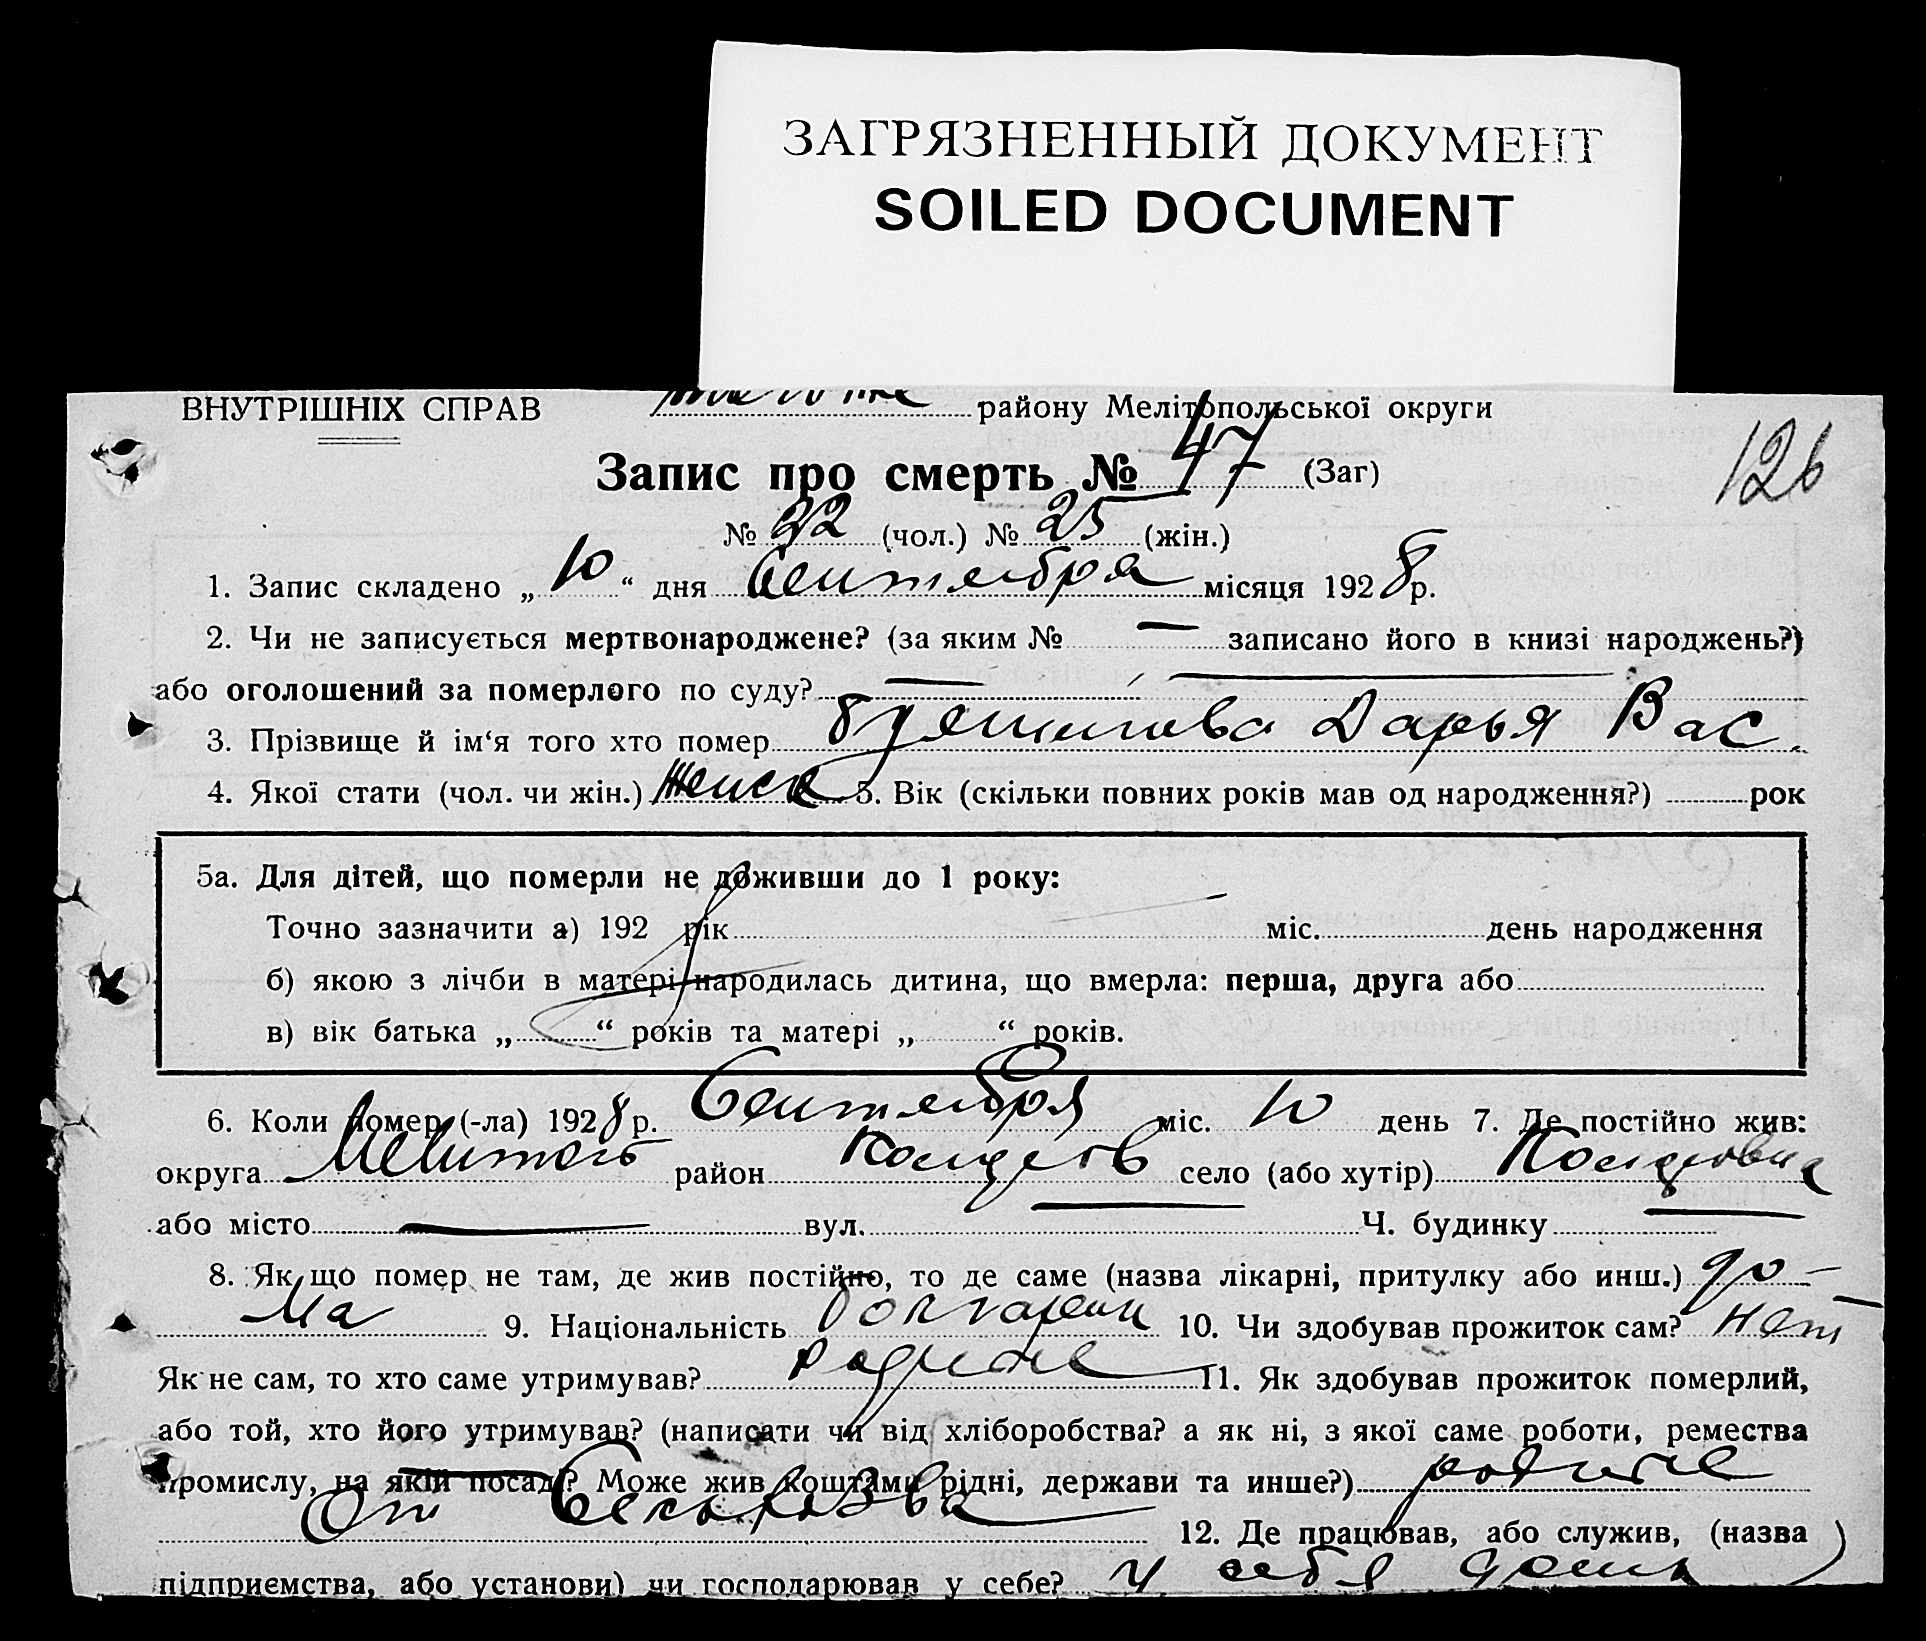 ЗАГРЯЗНЕННЫЙ ДОКУМЕНТ
SOILED DOCUMENT
ВНУТРІШНІХ СПРАВ району Мелітопольської округи
126
Запис про смерть № 47 (Заг)
№ 22 (чол.) № 25 (жін.)
1. Запис складено „ 10 “ дня Сентября місяця 1928 р.
2. Чи не записується мертвонароджене? (за яким № — записано його в книзі народжень?)
або оголошений за померлого по суду? — —
3. Прізвище й ім‘я того хто помер Дарья Вас.
4. Якої стати (чол. чи жін.) Женск 5. Вік (скільки повних років мав од народження?) рок
5а. Для дітей, що померли не доживши до 1 року:
Точно зазначити а) 192 рік міс. день народження
б) якою з лічби в матері народилась дитина, що вмерла: перша, друга або
в) вік батька „ “ років та матері „ “ років.
6. Коли помер (-ла) 1928 р. Сентября міс. 10 день 7. Де постійно жив:
округа Мелитоп район село (або хутір)
або місто — вул. — Ч. будинку —
8. Як що помер не там, де жив постійно, то де саме (назва лікарні, притулку або инш.) до-
ма 9. Національність болгарин 10. Чи здобував прожиток сам? нет
Як не сам, то хто саме утримував? родите 11. Як здобував прожиток померлий,
або той, хто його утримував? (написати чи від хліборобства? а як ні, з якої саме роботи, ремества
промислу, на якій посаді? Може жив коштами рідні, держави та инше?) родите
От 12. Де працював, або служив, (назва
підприємства, або установи) чи господарював у себе? у себя дома